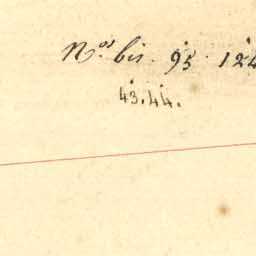 Nos. bis. 95. 124
43.44.